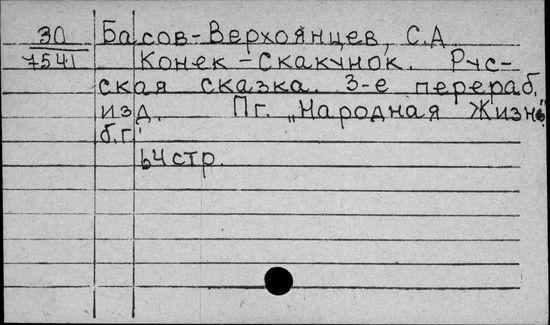 30 Басов-Верхоянцев, С.А.
7541 Конек-Скакунок. Рус-
ская сказка. 3-е перераб.
изд. Пг. „Народная Жизнь"
б.г.
64 стр.